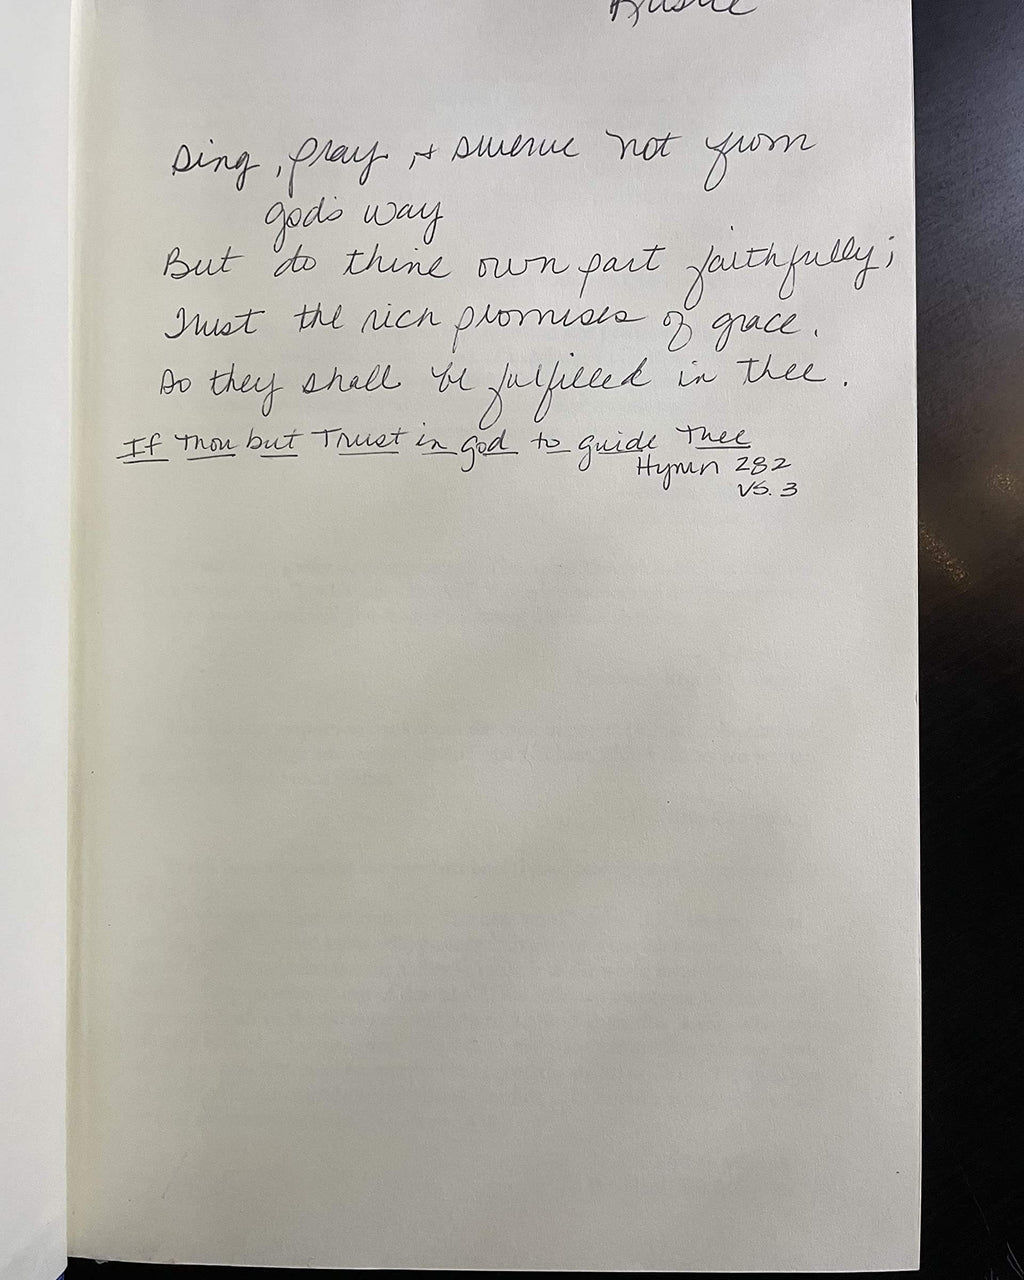 Sing, pray, + swerve not from
god's way
But do thine own part faithfully;
Trust the rich promises of grace.
So they shall be fulfilled in thee.
If Thou but Trust in god to guide Thee
Hymn 282
VS. 3